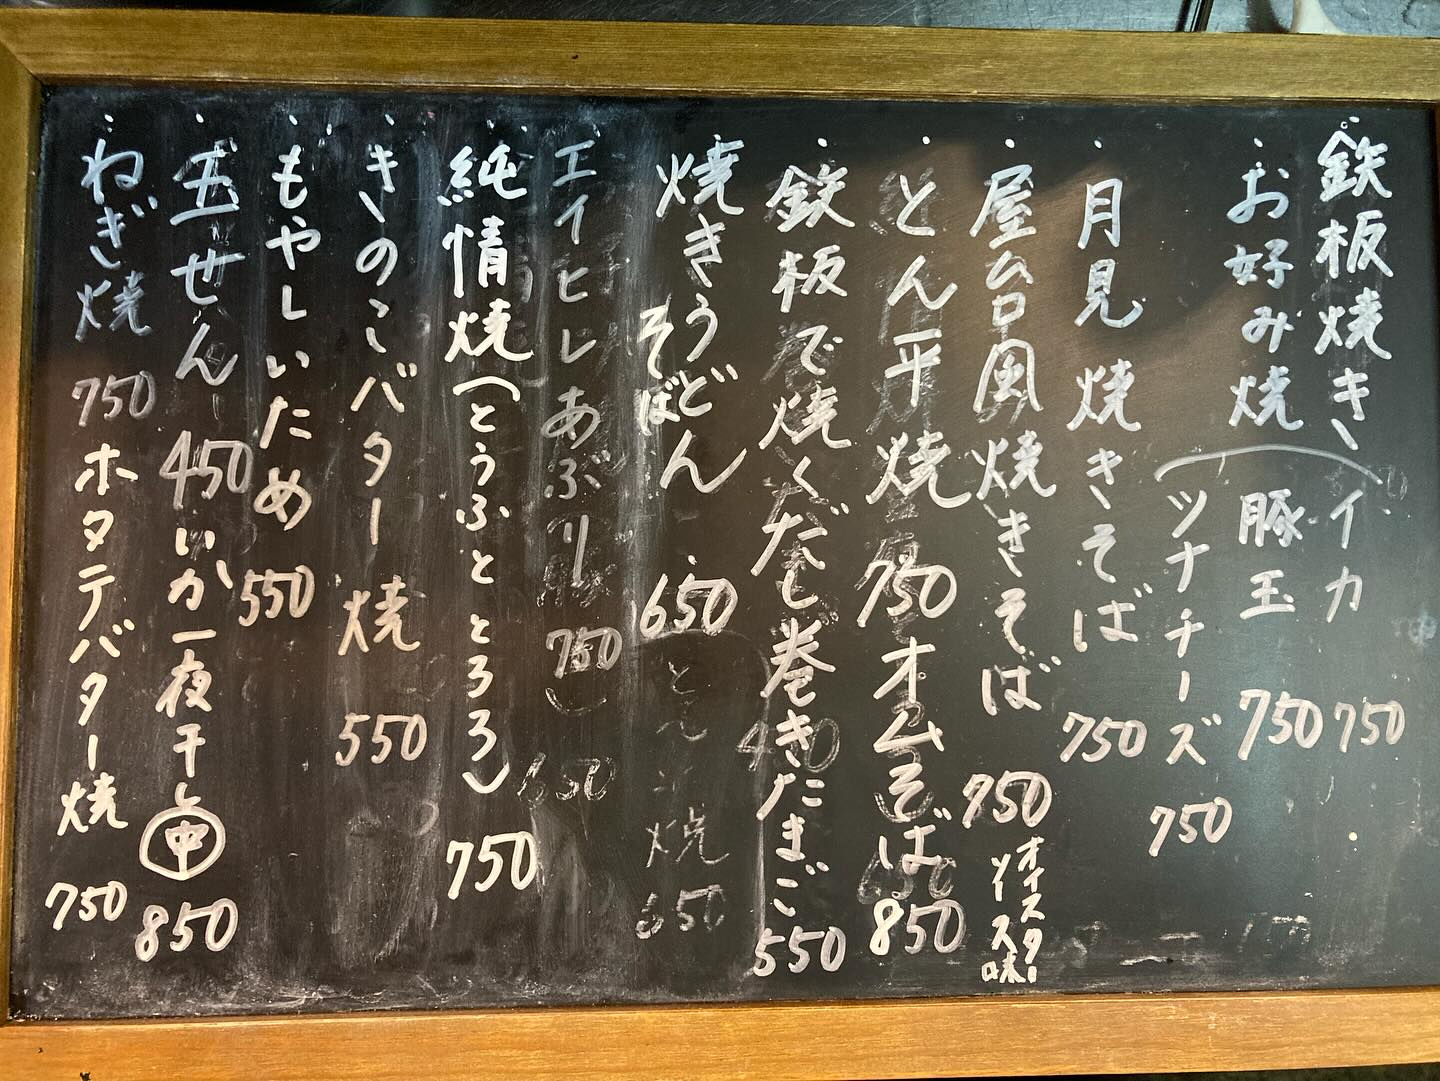 鉄板焼き
お好み焼
イカ 750
豚玉 750
ツナチーズ 750
月見焼きそば 750
屋台風焼きそば 750
オイスター
ソース味
とん平焼 750 オムそば 850
鉄板で焼くだし巻きたまご 550
焼きうどん
そば 650
エイヒレあぶり 750
純情焼(とうふととろろ) 750
きのこバター焼 550
もやしいため 550
玉せん 450 いか一夜干し 中 850
ねぎ焼 750 ホタテバター焼 750